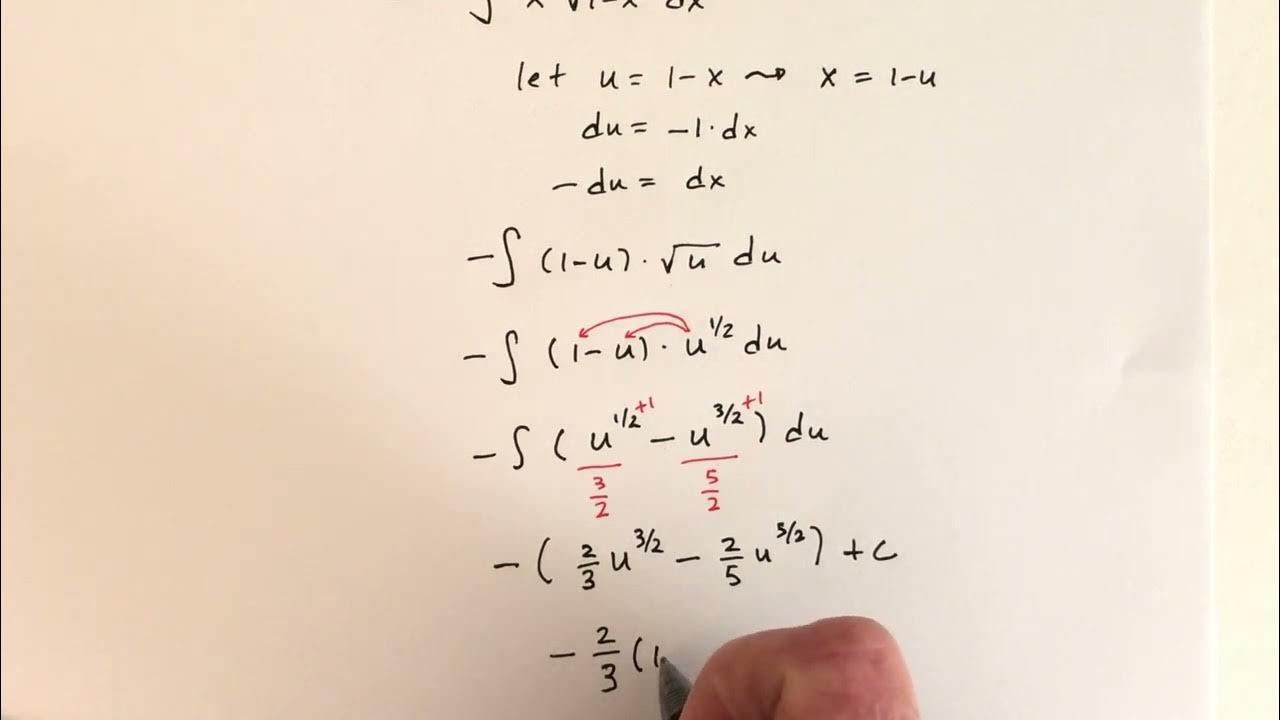 ∫ x √1-x dx
let u = 1-x ⤳ x = 1-u
du = -1·dx
-du = dx
-∫ (1-u)·√u du
-∫ (1-u)·u^1/2 du
-∫ (u^1/2+1 / 3/2 - u^3/2+1 / 5/2) du
-(2/3 u^3/2 - 2/5 u^5/2) + C
-2/3 (1